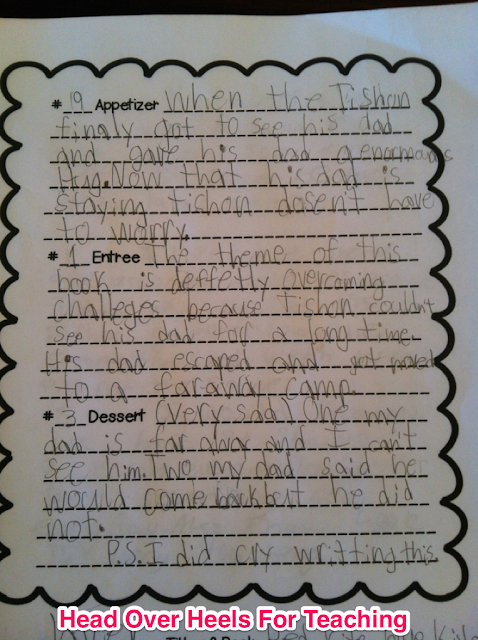 # 19 Appetizer When the Tishon
finaly got to see his dad
and gave his dad a enormouns
Hug. Now that his dad is
staying tishon dosen't have
to worry.
# 1 Entree The theme of this
book is deffetly overcoming
challeges because tishon couldn't
see his dad for a long time.
His dad escaped and got moved
to a faraway camp.
# 3 Dessert (very sad) One my
dad is far away and I can't
see him. Two my dad said he
would come back but he did
not.
P.S. I did cry writting this
Head Over Heels For Teaching